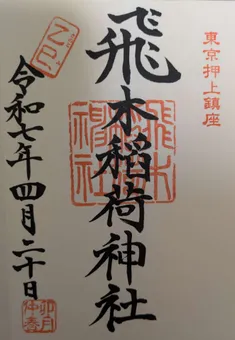 東京押上鎮座
飛木稲荷神社
飛木
稲荷
神社
令和七年四月二十日
卯月
仲春